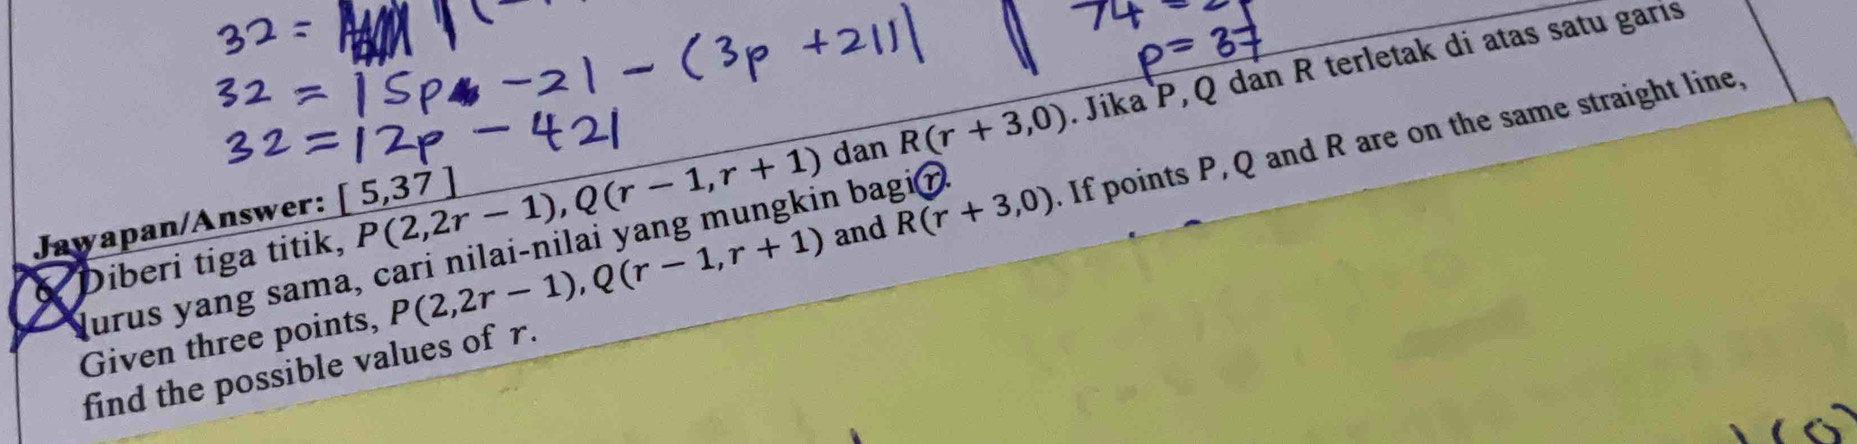 32 =
32 = |5p - 21 - (3p + 21)|
32 = |2p - 42|
74 =
p = 37
Jawapan/Answer: [ 5,37 ]
Diberi tiga titik, P(2,2r − 1), Q(r − 1, r + 1) dan R(r + 3,0). Jika P, Q dan R terletak di atas satu garis
lurus yang sama, cari nilai-nilai yang mungkin bagi r.
Given three points, P(2,2r − 1), Q(r − 1, r + 1) and R(r + 3,0). If points P, Q and R are on the same straight line,
find the possible values of r.